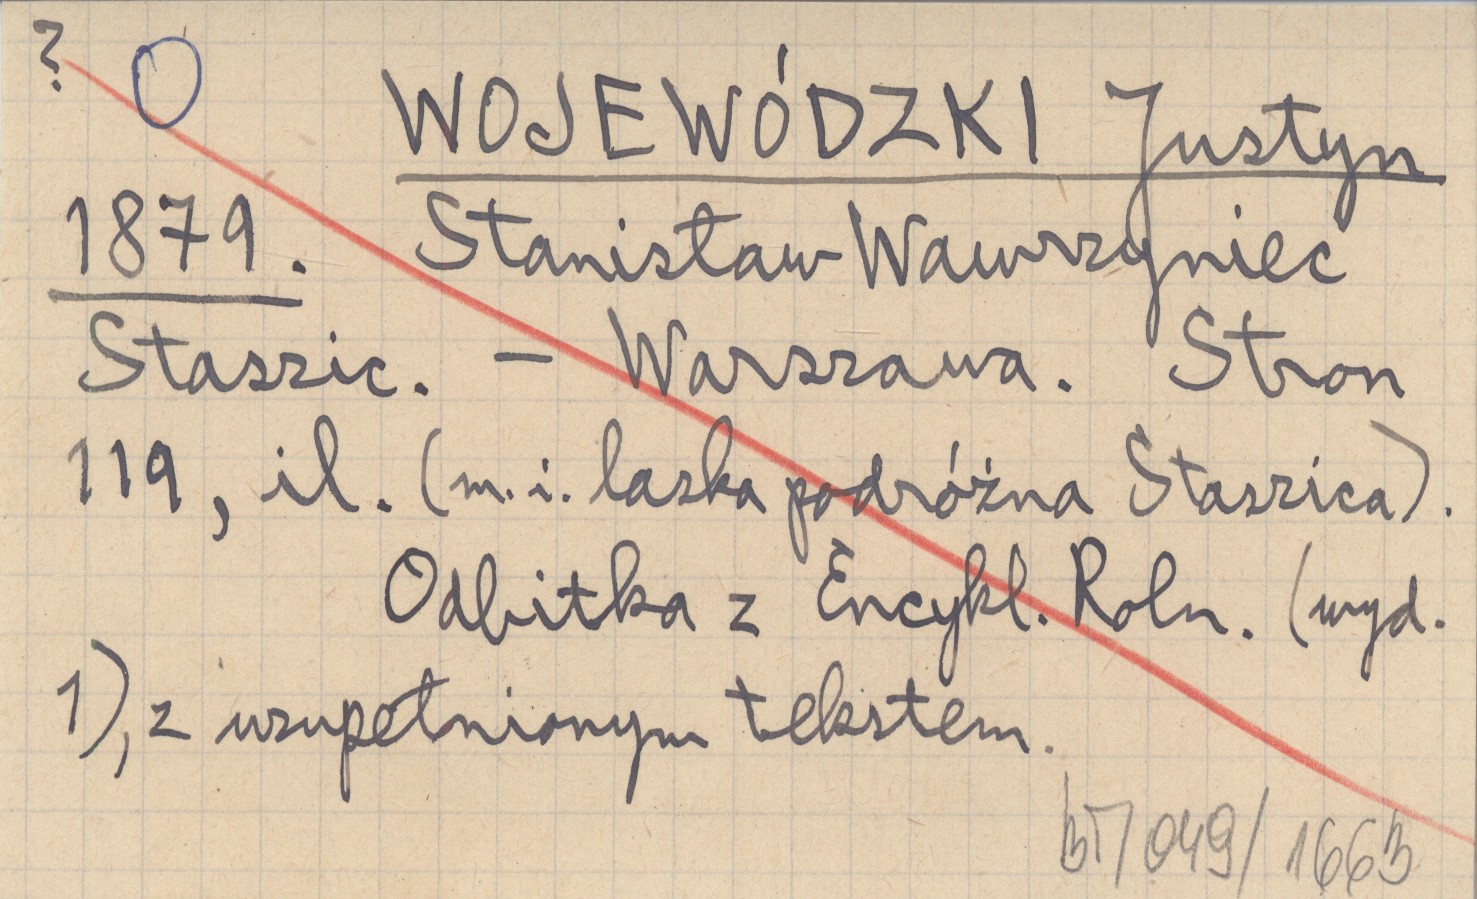 ?
WOJEWÓDZKI Justyn
1879. Stanisław Wawrzyniec
Staszic. – Warszawa. Stron
119, il. (m.i. laska podróżna Staszica).
Odbitka z Encykl. Roln. (wyd.
1), z uzupełnionym tekstem.
BT/049/1663